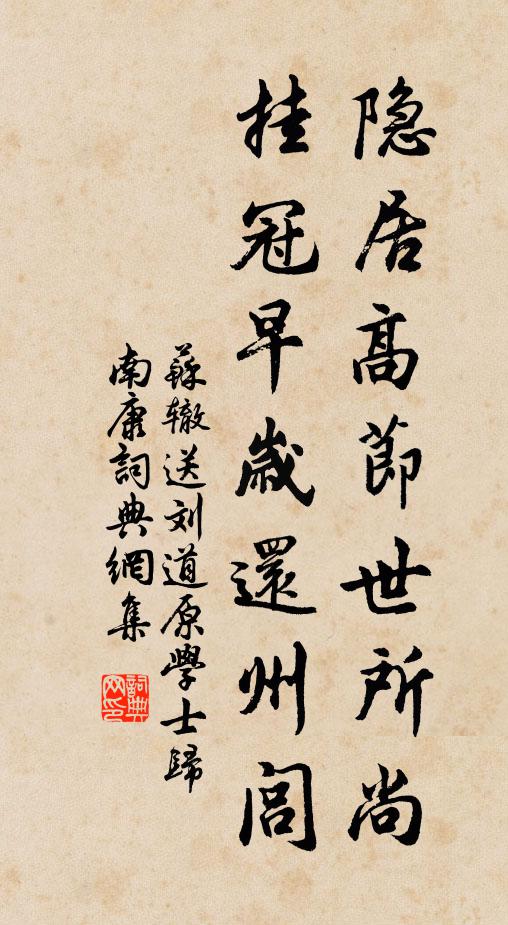 隐居高節世所尚
挂冠早歲還州閭
蘇辙送刘道原學士歸
南康詞典網集
詞典
网印